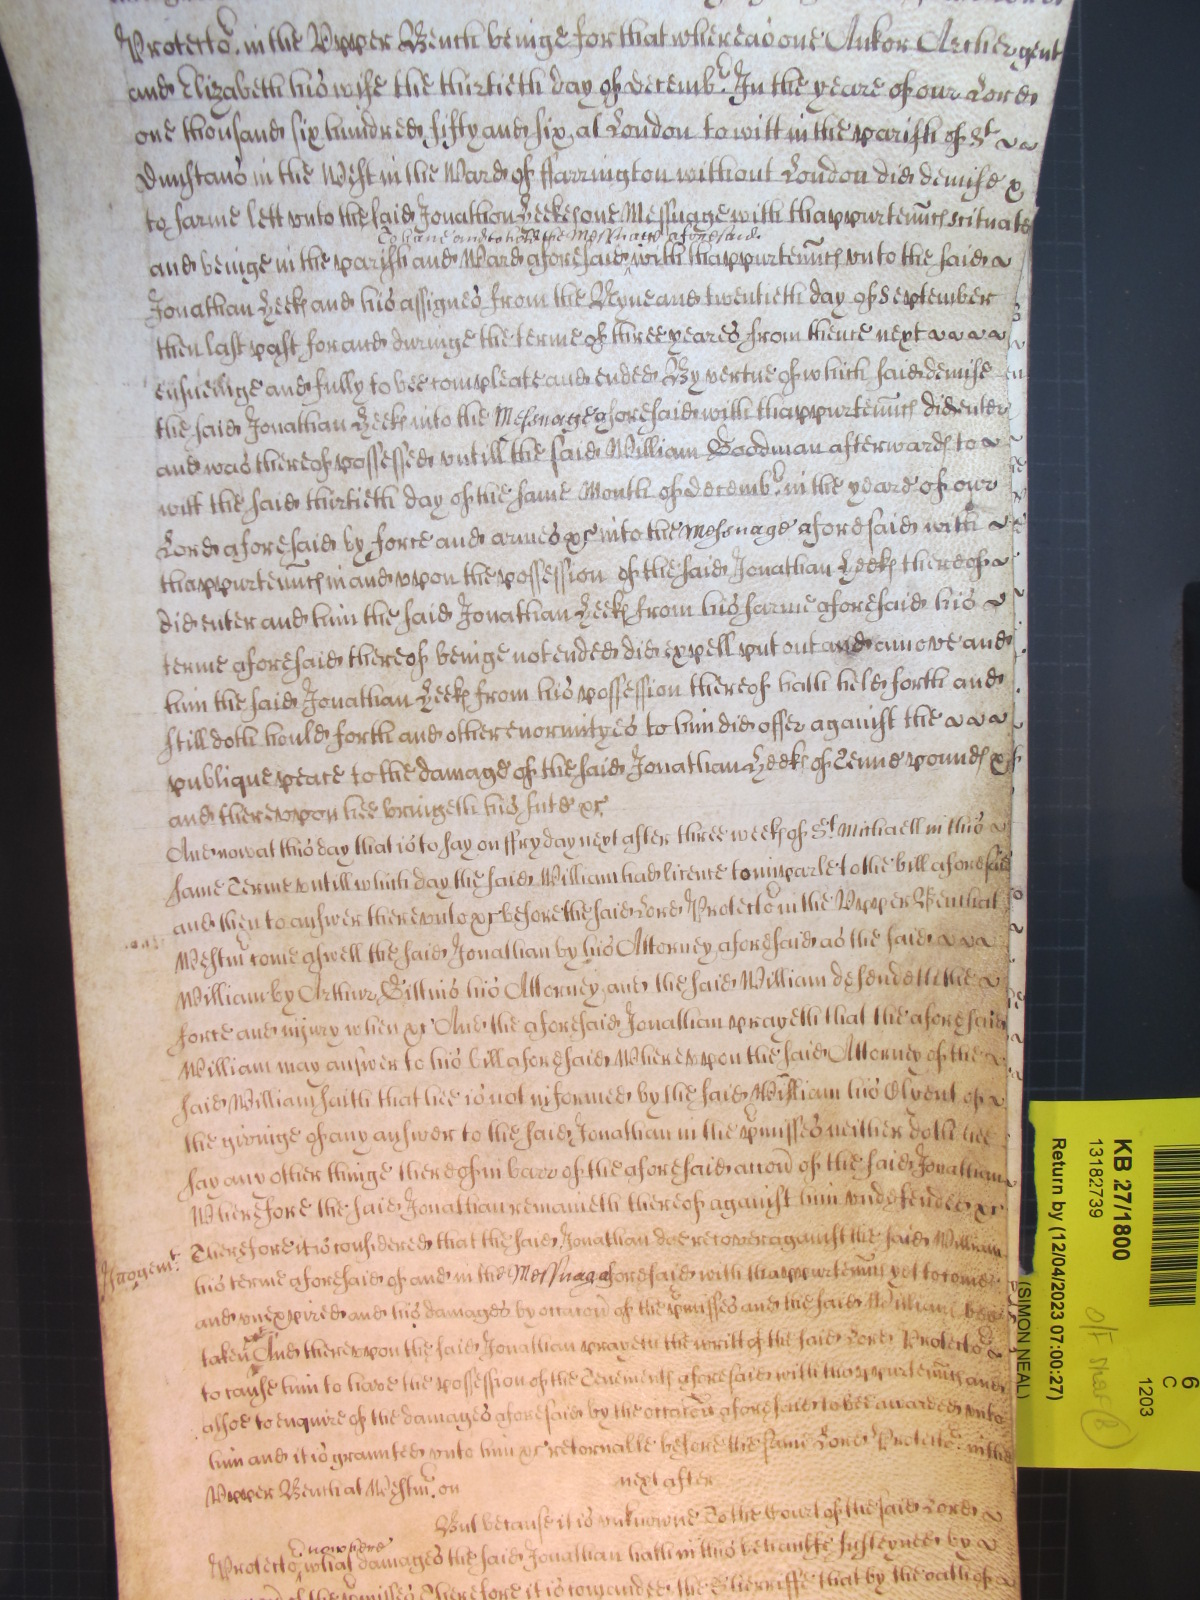 Protector in the Upper Bench beinge for that whereas one Ankor Archer gent
and Elizabeth his wife the thirtieth day of decembr. In the yeare of our Lord
one thousand six hundred fifty and six at London to witt in the parish of St
Dunstans in the West in the Ward of ffarrington without London did demise &
to farme lett unto the said Jonathan Leeke one Messuage with thappurtennces scituate
To have and to hold the Messuage aforesaid
and beinge in the parish and Ward aforesaid with thappurtennces unto the said
Jonathan Leeke and his assignes from the Nyne and twentieth day of September
then last past for and duringe the terme of three yeares from thence next
ensueinge and fully to bee compleate and ended By vertue of which said demise
the said Jonathan Leeke into the Messuage aforesaid with thappurtennces did enter
and was thereof possessed untill the said William Goodman afterwards to
witt the said thirtieth day of the same Month of decembr. in the yeare of our
Lord aforesaid by force and armes &c into the Messuage aforesaid with
thappurtennces in and upon the possession of the said Jonathan Leeke thereof
did enter and him the said Jonathan Leeke from his farme aforesaid his
terme aforesaid thereof beinge not ended did expell put out and amove and
him the said Jonathan Leeke from his possession thereof hath held forth and
still doth hould forth and other enormityes to him did offer against the
publique peace to the damage of the said Jonathan Leeke of Tenne pounds &
and thereupon hee bringeth his sute &c
And now at this day that is to say on ffryday next after three weeks of St. Michaell in this
same Terme untill which day the said William had licence to imparle to the bill aforesaid
and then to answer thereunto &c before the said Lord Protector in the Upper Bench at
Westmr come aswell the said Jonathan by his Attorney aforesaid as the said
William by Arthur Gillins his Attorney and the said William defendeth the
force and injury when &c And the aforesaid Jonathan prayeth that the aforesaid
William may answer to his bill aforesaid Whereupon the said Attorney of the
said William saith that hee is not informed by the said William his Clyent of
the givinge of any answer to the said Jonathan in the premisses neither doth hee
say any other thinge thereof in barr of the aforesaid accon of the said Jonathan
Wherefore the said Jonathan remaineth thereof against him undefended &c
Therefore it is considered that the said Jonathan doe recover against the said William
Judgemt.
his terme aforesaid of and in the Messuage aforesaid with thappurtennces yet to come
and unexpired and his damages by occacon of the premisses and the said William bee
taken And thereupon the said Jonathan prayeth the writt of the said Lord Protector
to cause him to have the possession of the Tenements aforesaid with thappurtennces and
alsoe to enquire of the damages aforesaid by the occacon aforesaid to bee awarded unto
him and it is graunted unto him &c retornable before the same Lord Protector in the
Upper Bench at Westmr. on next after
But because it is unknowne To the Court of the said Lord
now here
Protector what damages the said Jonathan hath in this behaulfe susteyned by
occacon of the premisses Therefore it is comanded the Sherriffe that by the oath of
KB 27/1800
13182739
Return by (12/04/2023 07:00:27)
(SIMON NEAL)
6
C
1203